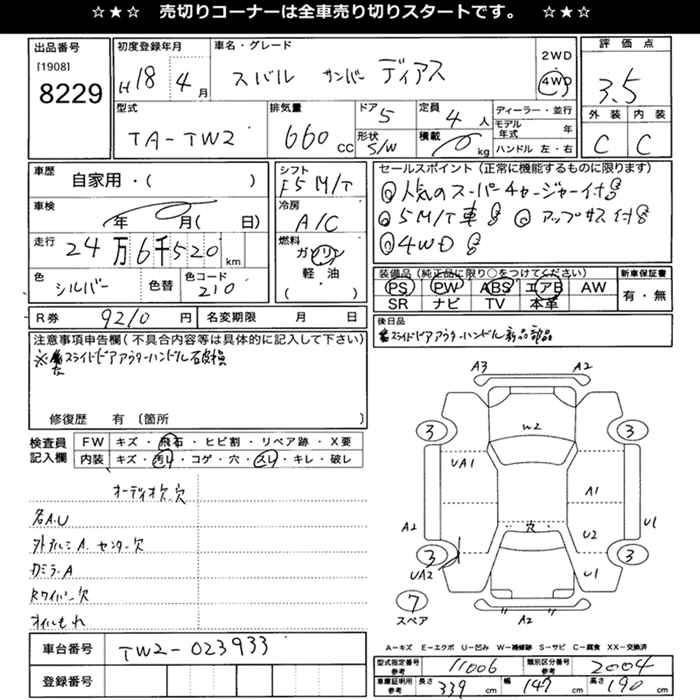 ☆★☆ 売切りコーナーは全車売り切りスタートです。 ☆★☆
出品番号
[1908]
8229
初度登録年月
H18年4月
車名・グレード
スバル サンバー ディアス
2WD
4WD
評価点
3.5
外装 内装
C C
型式
TA-TW2
排気量
660 CC
ドア 5
形状 S/W
定員 4 人
積載 kg
ディーラー・並行
モデル年式 年
ハンドル 左・右
車歴
自家用・( )
車検
年 月( 日)
走行
24万6千520 km
色
シルバー
色替
色コード
210
シフト
F5 M/T
冷房
A/C
燃料
ガソリン
軽・油
( )
セールスポイント(正常に機能するものに限ります)
人気のスーパーチャージャー付
5M/T車 アップサス付
4WD
装備品(純正品に限り○をつけてください)
PS PW ABS エアB AW
SR ナビ TV 本革
新車保証書
有・無
R券 9210 円
名変期限 月 日
後日品
スライドドアアウターハンドル新品部品
注意事項申告欄(不具合内容等は具体的に記入して下さい)
※ スライドドアアウターハンドル破損
修復歴 有〔箇所 〕
検査員
記入欄
FW キズ・飛石・ヒビ割・リペア跡・X要
内装 キズ・汚レ・コゲ・穴・スレ・キレ・破レ
オーディオ欠、穴
各A.U
外アルミA. センター欠
カミラーA
Rワイパー欠
オイルもれ
A3 A2
3 3
W2
UA1
A1
A2 U1
穴 U2
3 3
UA2 U1
7
スペア
A2
A-キズ E-エクボ U-凹み W-補修跡 S-サビ C-腐食 XX-交換済
車台番号 TW2-023933
登録番号
型式指定番号 参考 11006
類別区分番号 参考 2004
車庫証明用 参考 長さ 339 cm 幅 147 cm 高さ 190 cm